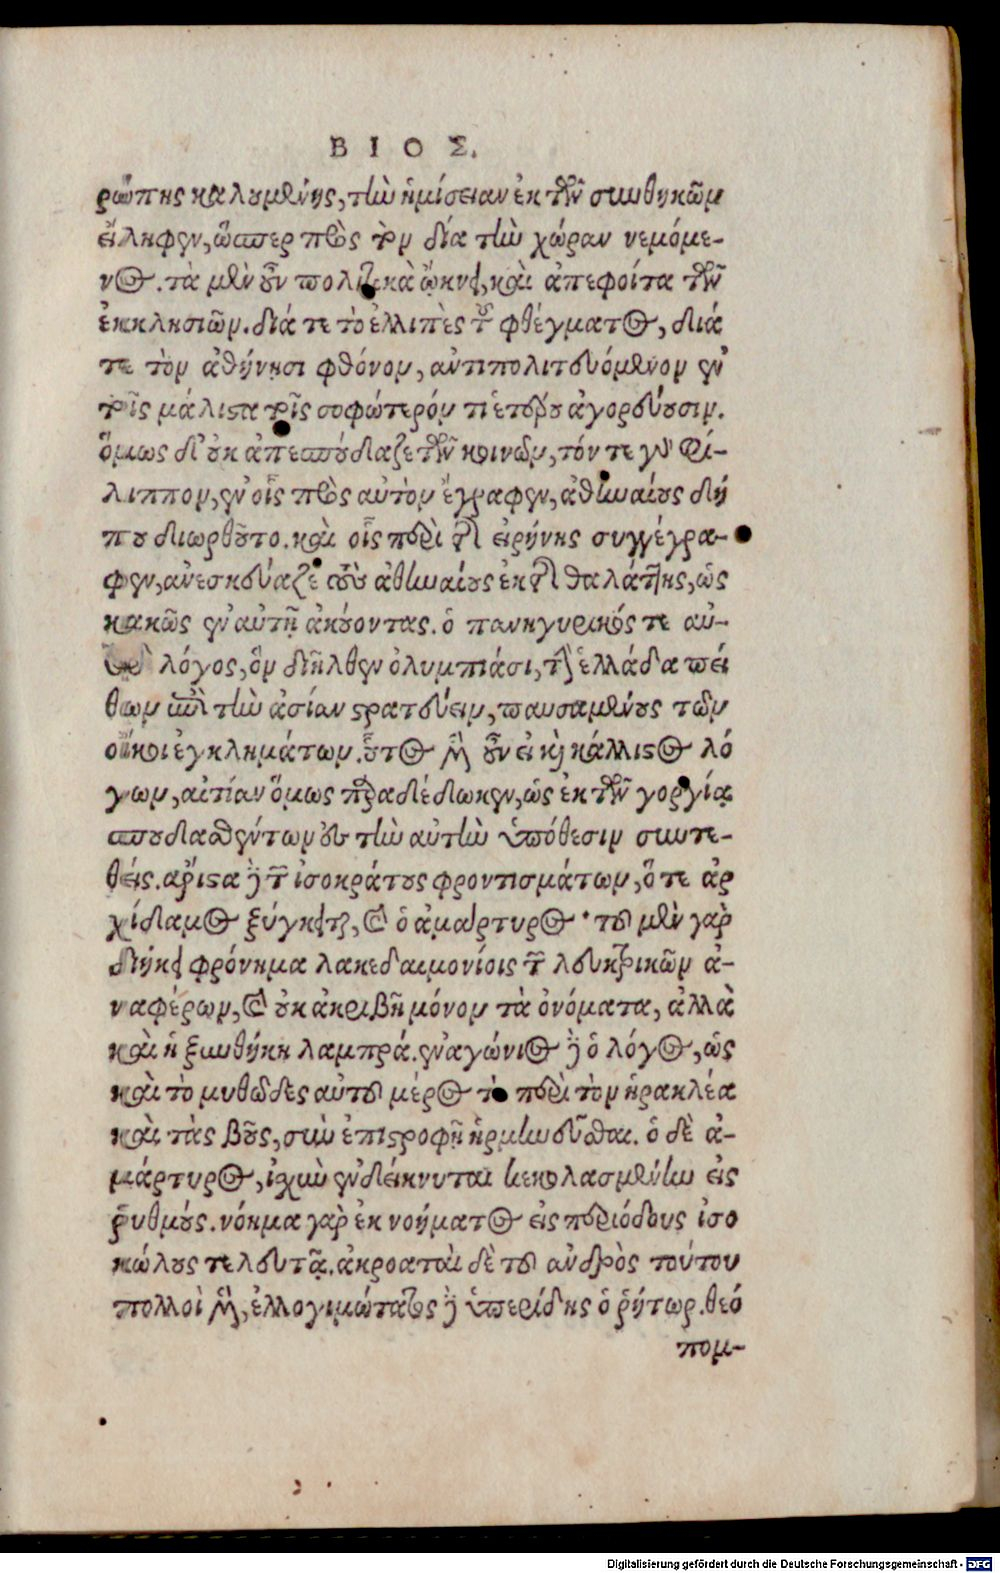 ΒΙΟΣ.
ρώπης καλουμένης, τὴν ἡμίσειαν ἐκ τῶν συνθηκῶν
εἴληφεν, ὥσπερ πρὸς τὸν δία τὴν χώραν νεμόμε-
νος. τὰ μὲν οὖν πολιτικὰ ὤκνει, καὶ ἀπεφοίτα τῶν
ἐκκλησιῶν. διά τε τὸ ἐλλιπὲς τοῦ φθέγματος, διά
τε τὸν ἀθήνησι φθόνον, ἀντιπολιτευόμενον ἐν
τοῖς μάλιστα τοῖς σοφώτερόν τι ἑτέρου ἀγορεύουσιν.
ὅμως δ' οὐκ ἀπεσπούδαζε τῶν κοινῶν, τόν τε γὰρ Φί-
λιππον, ἐν οἷς πρὸς αὐτὸν ἔγραφεν, ἀθηναίοις δή
που διωρθοῦτο. καὶ οἷς περὶ τῆς εἰρήνης συγγέγρα-
φεν, ἀνεσκεύαζε τοὺς ἀθηναίους ἐκ τῆς θαλάττης, ὡς
κακῶς ἐν αὐτῇ ἀκούοντας. ὁ πανηγυρικός τε αὐ-
τοῦ λόγος, ὃν διῆλθεν ὀλυμπιάσι, τὴν ἑλλάδα πεί
θων ἐπὶ τὴν ἀσίαν στρατεύειν, παυσαμένους τῶν
οἴκοι ἐγκλημάτων. οὗτος μὲν οὖν εἰ καὶ κάλλιστος λό
γων, αἰτίαν ὅμως παραδέδωκεν, ὡς ἐκ τῶν γοργίᾳ
σπουδασθέντων ἐς τὴν αὐτὴν ὑπόθεσιν συντε-
θείς. ἄριστα δὲ τῶν ἰσοκράτους φροντισμάτων, ὅ τε ἀρ
χίδαμος ξύγκειται, καὶ ὁ ἀμάρτυρος· τοῦ μὲν γὰρ
διήκει φρόνημα λακεδαιμονίοις τῶν λευκτρικῶν ἀ-
ναφέρων, καὶ οὐκ ἀκριβῆ μόνον τὰ ὀνόματα, ἀλλὰ
καὶ ἡ ξυνθήκη λαμπρά. ἐναγώνιος δὲ ὁ λόγος, ὡς
καὶ τὸ μυθῶδες αὐτοῦ μέρος τὸ περὶ τὸν ἡρακλέα
καὶ τὰς βοῦς, σὺν ἐπιστροφῇ ἡρμηνεῦσθαι. ὁ δὲ ἀ-
μάρτυρος, ἰσχὺν ἐνδείκνυται κεκολασμένην εἰς
ῥυθμούς. νόημα γὰρ ἐκ νοήματος εἰς περιόδους ἰσο
κώλους τελευτᾷ. ἀκροαταὶ δὲ τοῦ ἀνδρὸς τούτου
πολλοὶ μὲν, ἐλλογιμώτατος δὲ ὑπερίδης ὁ ῥήτωρ. θεό
πομ-
Digitalisierung gefördert durch die Deutsche Forschungsgemeinschaft - DFG